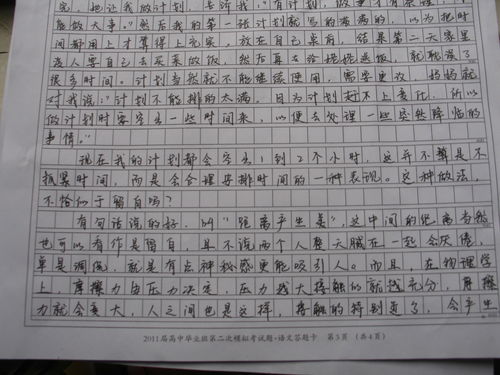 完，她让我做计划，去济我："有计划，做事才有条理，才
能做大事。"然后我的第一张计划就写的满满的，以为把时
间都用上才算得上充实，放在自己桌前，结果第二天家里
没人要自己去买菜做饭，然后再去给姥姥送饭，就耽误了
很多时间。计划当然就不能继续使用，需要更改，妈妈就
对我说："计划不能排的太满，因为计划赶不上变化，所以
做计划时要空出一些时间来，以便去处理一些突然降临的
事情。"
现在我的计划都会空出1到2个小时，这并不算是不
抓紧时间，而是会合理安排时间的一种表现。这种做法，
不恰似于留白吗？
有句话说的好，叫"距离产生美"，这中间的距离当然
也可以看作是留白，且不说两个人整天腻在一起会厌倦，
单是调侃，就是有点神秘感更能吸引人。而且，在物理学
上，摩擦力由压力决定，压力越大接触的就越充分，摩擦
力就会变大，人之间也是这样，接触的特别多了，会产生
2011届高中毕业班第二次模拟考试题·语文答题卡 第3页（共4页）